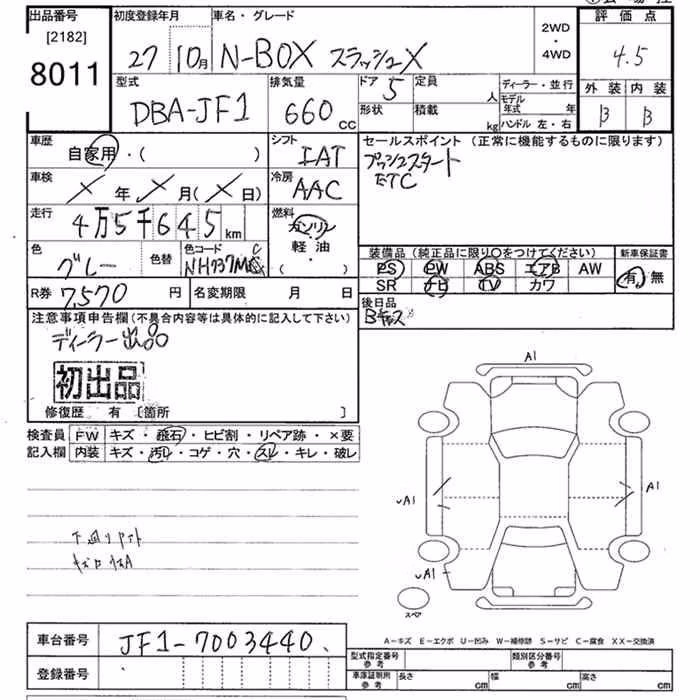 出品番号
[2182]
8011
初度登録年月
27 10月
車名・グレード
N-BOX スラッシュX
2WD
・
4WD
評価点
4.5
外装 内装
B B
型式
DBA-JF1
排気量
660 cc
ドア 5
形状
定員 人
積載 kg
ディーラー・並行
モデル年式 年
ハンドル 左・右
車歴
自家用・( )
シフト
IAT
セールスポイント (正常に機能するものに限ります)
プッシュスタート
ETC
車検
× 年 × 月(× 日)
冷房
AAC
走行
4万5千645 km
燃料
ガソリン
軽油
( )
色
グレー
色替
色コード
装備品(純正品に限り○をつけてください)
PS PW ABS エアB AW
SR ナビ TV カワ
新車保証書
有・無
R券 7,570 円
名変期限 月 日
後日品
注意事項申告欄(不具合内容等は具体的に記入して下さい)
ディーラー出品
初出品
修復歴 有 [箇所 ]
検査員 FW キズ・飛石・ヒビ割・リペア跡・×要
記入欄 内装 キズ・汚レ・コゲ・穴・スレ・キレ・破レ
A1
A1
A1
A1
スペア
A-キズ E-エクボ U-凹み W-補修跡 S-サビ C-腐食 XX-交換済
車台番号 JF1-7003440
登録番号
型式指定番号 参考
類別区分番号 参考
車庫証明用 参考 長さ cm 幅 cm 高さ cm